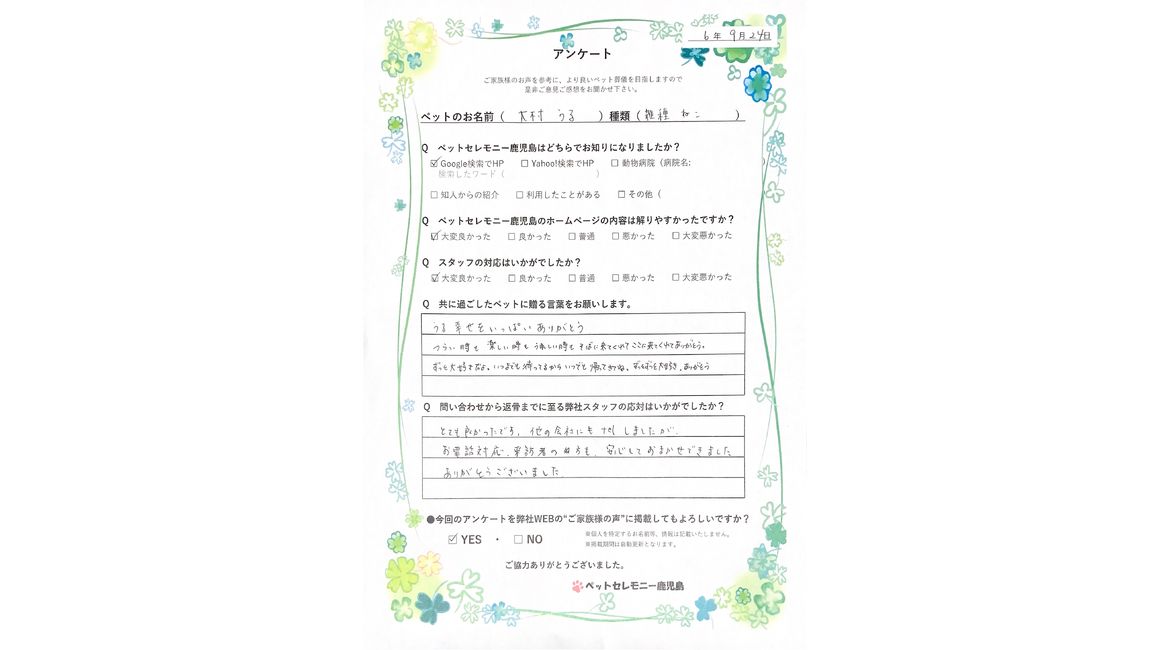 6年 9月24日
アンケート
ご家族様のお声を参考に、より良いペット葬儀を目指しますので
是非ご意見ご感想をお聞かせ下さい。
ペットのお名前（ 大村 うる ）種類（ 雑種 ねこ ）
Q ペットセレモニー鹿児島はどちらでお知りになりましたか？
☑ Google検索でHP □ Yahoo!検索でHP □ 動物病院（病院名: ）
検索したワード（ ）
□ 知人からの紹介 □ 利用したことがある □ その他（
Q ペットセレモニー鹿児島のホームページの内容は解りやすかったですか？
☑ 大変良かった □ 良かった □ 普通 □ 悪かった □ 大変悪かった
Q スタッフの対応はいかがでしたか？
☑ 大変良かった □ 良かった □ 普通 □ 悪かった □ 大変悪かった
Q 共に過ごしたペットに贈る言葉をお願いします。
うる 幸せをいっぱい ありがとう
つらい時も 楽しい時も うれしい時も そばに来てくれて ここに来てくれてありがとう。
ずっと大好きだよ。いつまでも待ってるから いつでも 帰ってきてね。ずっとずっと大好き。ありがとう
Q 問い合わせから返骨までに至る弊社スタッフの応対はいかがでしたか？
とても良かったです。他の会社にも しましたが、
お電話対応、来訪者の 方も、安心して おまかせできました
ありがとうございました。
●今回のアンケートを弊社WEBの“ご家族様の声”に掲載してもよろしいですか？
☑ YES ・ □ NO
※個人を特定するお名前等、情報は記載いたしません。
※掲載期間は自動更新となります。
ご協力ありがとうございました。
ペットセレモニー鹿児島